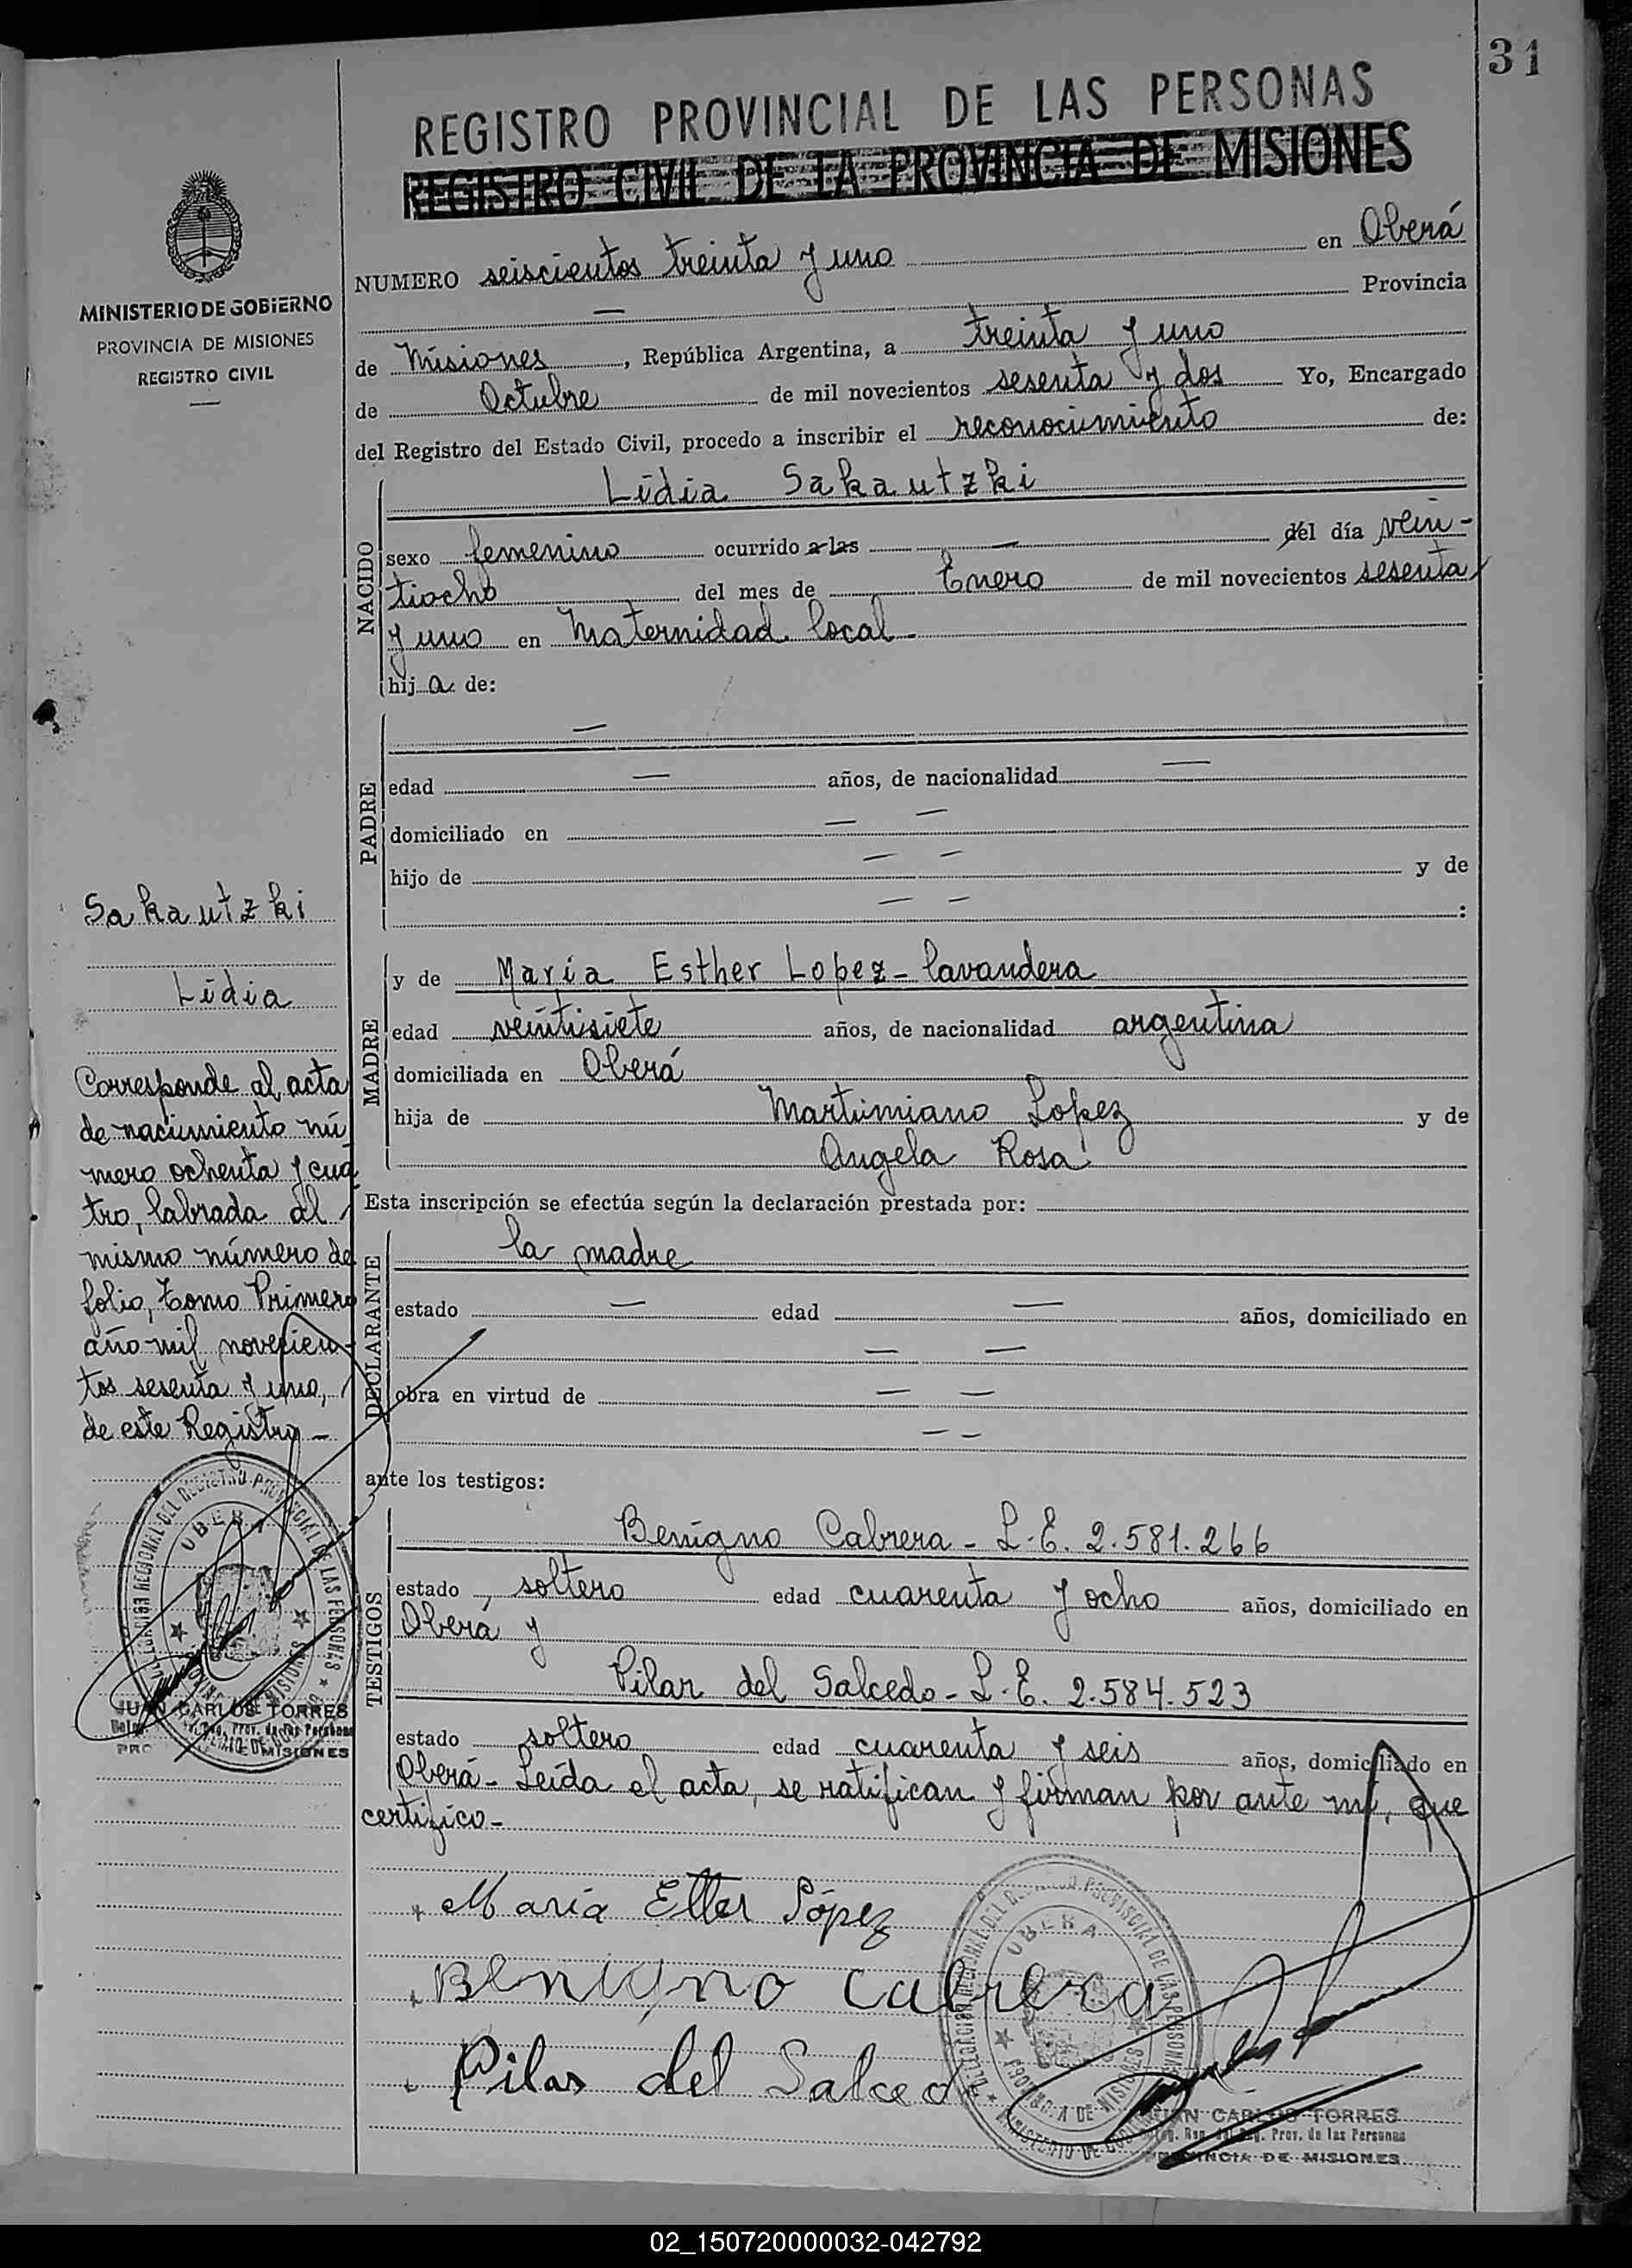 31
REGISTRO PROVINCIAL DE LAS PERSONAS
REGISTRO CIVIL DE LA PROVINCIA DE MISIONES
MINISTERIO DE GOBIERNO
PROVINCIA DE MISIONES
REGISTRO CIVIL
NUMERO seiscientos treinta y uno en Oberá
— Provincia
de Misiones, República Argentina, a treinta y uno
de Octubre de mil novecientos sesenta y dos Yo, Encargado
del Registro del Estado Civil, procedo a inscribir el reconocimiento de:
NACIDO
Lidia Sakautzki
sexo femenino ocurrido a las — del día vein-
tiocho del mes de Enero de mil novecientos sesenta
y uno en Maternidad local-
hija de:
PADRE
—
edad — años, de nacionalidad —
domiciliado en — —
hijo de — — y de
— — :
MADRE
y de María Esther Lopez - lavandera
edad veintisiete años, de nacionalidad argentina
domiciliada en Oberá
hija de Martimiano Lopez y de
Angela Rosa
Esta inscripción se efectúa según la declaración prestada por:
DECLARANTE
la madre
estado — edad — años, domiciliado en
— —
obra en virtud de — —
— —
ante los testigos:
TESTIGOS
Benigno Cabrera - L.E. 2.581.266
estado, soltero edad cuarenta y ocho años, domiciliado en
Oberá y
Pilar del Salcedo - L.E. 2.584.523
estado soltero edad cuarenta y seis años, domiciliado en
Oberá - Leída el acta, se ratifican y firman por ante mí, que
certifico-
María Etter López
Benigno Cabrera
Pilar del Salcedo
JUAN CARLOS TORRES
Prov. de las Personas
PROVINCIA DE MISIONES
Sakautzki
Lidia
Corresponde al acta
de nacimiento nú
mero ochenta y cua
tro, labrada al
mismo número de
folio, Tomo Primero
año mil novecien-
tos sesenta y uno,
de este Registro-
OBERA
JUAN CARLOS TORRES
Prov. de las Personas
MISIONES
OBERA
02_150720000032-042792